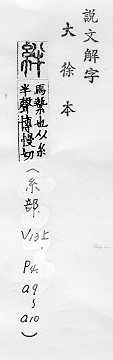 説文解字
大徐本
絆
馬縶也从糸
半聲博慢切
(糸部 V13上 P4. a9~a10)